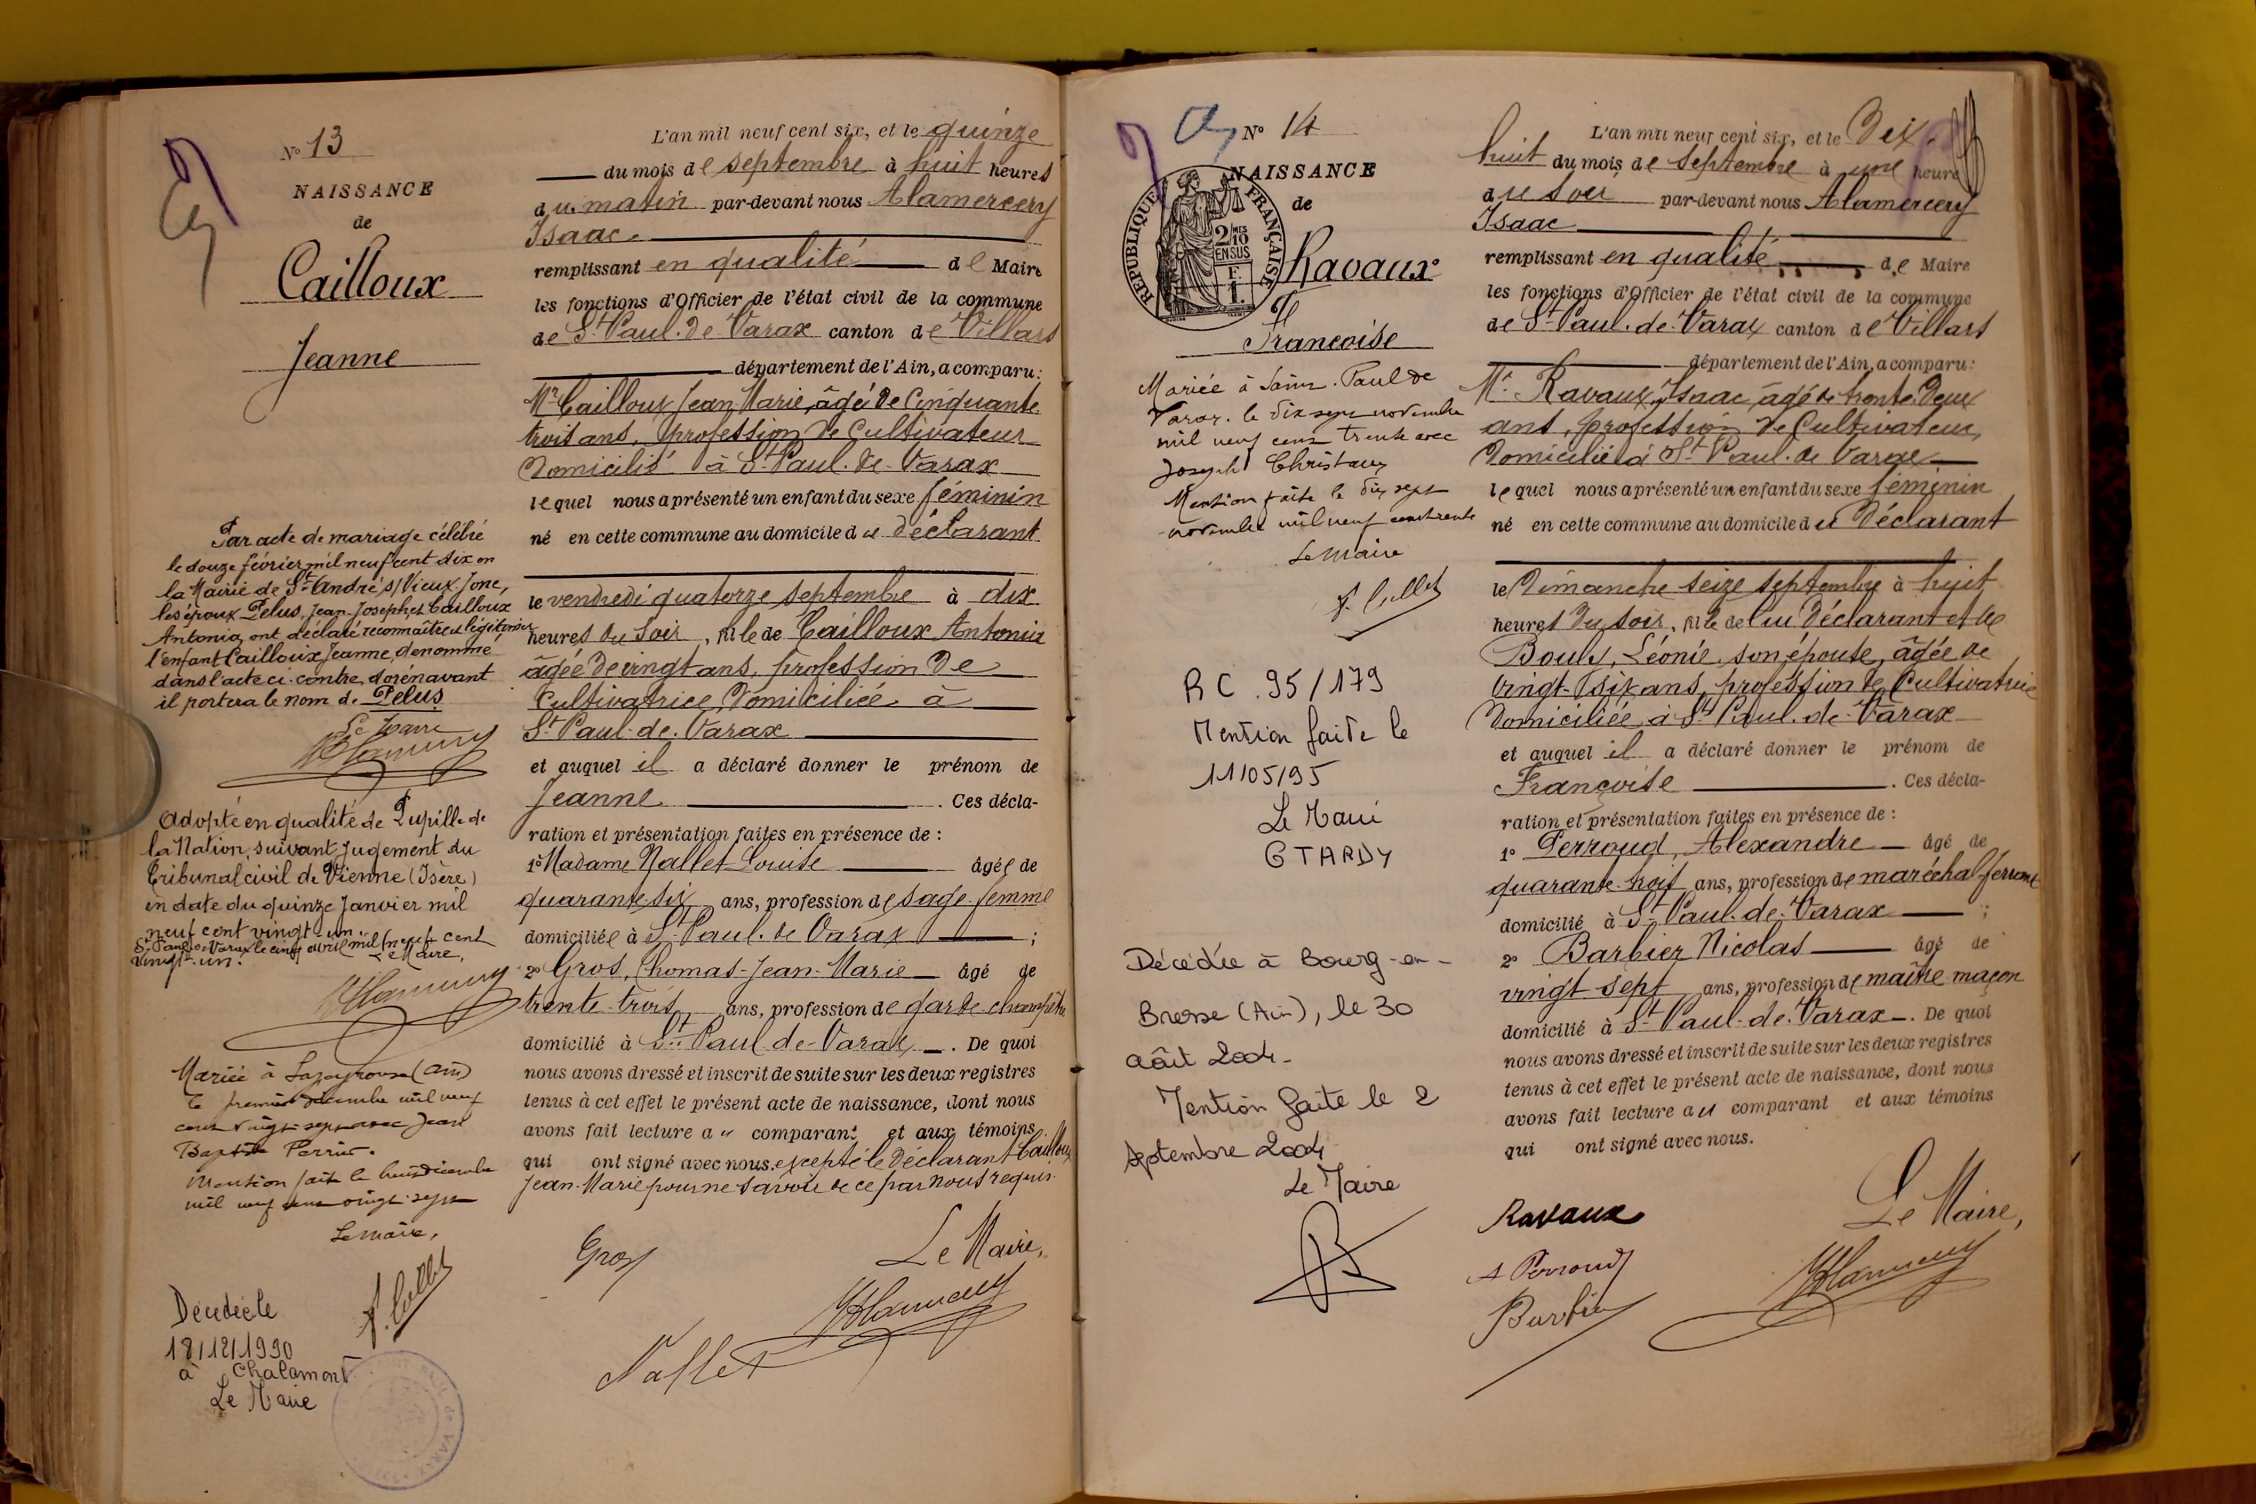 N° 13
NAISSANCE
de
Cailloux
Jeanne
Par acte de mariage célébré
le douze février mil neuf cent dix en
la Mairie de St André s/ Vieux Jonc,
les époux Pelus, Jean-Joseph et Cailloux
Antonia, ont déclaré reconnaître et légitimer
l'enfant Cailloux Jeanne, dénommé
dans l'acte ci-contre, dorénavant
il portera le nom de Pelus
Le Maire
Adopté en qualité de Pupille de
la Nation, suivant jugement du
Tribunal civil de Vienne (Isère)
en date du quinze Janvier mil
neuf cent vingt-un.
St Paul de Varax le cinq avril mil neuf cent
vingt-un. Le Maire,
Mariée à Lapeyrouse (Ain)
le premier décembre mil neuf
cent vingt-sept avec Jean
Baptiste Perrin.
Mention faite le huit décembre
mil neuf cent vingt-sept
Le maire,
Décédée le
18/12/1990
à Chalamont
Le Maire
L'an mil neuf cent six, et le quinze
du mois de septembre à huit heures
du matin par-devant nous Alamercery
Isaac.
remplissant en qualité de Maire
les fonctions d'Officier de l'état civil de la commune
de St Paul-de-Varax canton de Villars
département de l'Ain, a comparu :
Mr Cailloux Jean-Marie, âgé de Cinquante
trois ans, profession de Cultivateur
Domicilié à St Paul-de-Varax
lequel nous a présenté un enfant du sexe féminin
né en cette commune au domicile du déclarant
le vendredi quatorze septembre à dix
heures du soir, fille de Cailloux Antonia
âgée de vingt ans, profession de
Cultivatrice, Domiciliée à
St Paul-de-Varax
et auquel il a déclaré donner le prénom de
Jeanne . Ces décla-
ration et présentation faites en présence de :
1° Madame Nallet Louise âgée de
quarante-six ans, profession de sage-femme
domiciliée à St Paul-de Varax ;
2° Gros, Thomas-Jean-Marie âgé de
trente-trois ans, profession de garde-champêtre
domicilié à St Paul-de-Varax . De quoi
nous avons dressé et inscrit de suite sur les deux registres
tenus à cet effet le présent acte de naissance, dont nous
avons fait lecture au comparant et aux témoins
qui ont signé avec nous. excepté le Déclarant Cailloux
Jean-Marie pour ne savoir de ce par nous requis.
Gros
Le Maire,
Nallet
N° 14
NAISSANCE
de
RÉPUBLIQUE FRANÇAISE
2/10
EN SUS
F.
1.
Ravaux
Francoise
Mariée à Saint-Paul de
Varax, le dix sept novembre
mil neuf cent trente avec
Joseph Christaux
Mention faite le dix sept
novembre mil neuf cent trente
Le maire
RC. 95/179
Mention faite le
11/05/95
Le Maire
G TARDY
Décédée à Bourg-en-
Bresse (Ain), le 30
août 2004-
Mention faite le 2
septembre 2004
Le Maire
L'an mil neuf cent six, et le Dix-
huit du mois de septembre à une heure
du soir par-devant nous Alamercery
Isaac
remplissant en qualité de Maire
les fonctions d'Officier de l'état civil de la commune
de St Paul-de-Varax canton de Villars
département de l'Ain, a comparu :
Mr Ravaux, Isaac, âgé de trente-deux
ans, profession de Cultivateur,
Domicilié à St Paul-de Varax
lequel nous a présenté un enfant du sexe féminin
né en cette commune au domicile du Déclarant
le Dimanche seize septembre à huit
heures du soir, fille de lui Déclarant et de
Bouly, Léonie, son épouse, âgée de
vingt-six ans, profession de Cultivatrice
Domiciliée à St Paul-de-Varax
et auquel il a déclaré donner le prénom de
Françoise . Ces décla-
ration et présentation faites en présence de :
1° Perroud, Alexandre âgé de
quarante-trois ans, profession de maréchal-ferrant
domicilié à St Paul-de-Varax ;
2° Barbier Nicolas âgé de
vingt-sept ans, profession de maître maçon
domicilié à St Paul-de-Varax . De quoi
nous avons dressé et inscrit de suite sur les deux registres
tenus à cet effet le présent acte de naissance, dont nous
avons fait lecture au comparant et aux témoins
qui ont signé avec nous.
Ravaux
Le Maire,
A Perroud
Barbier